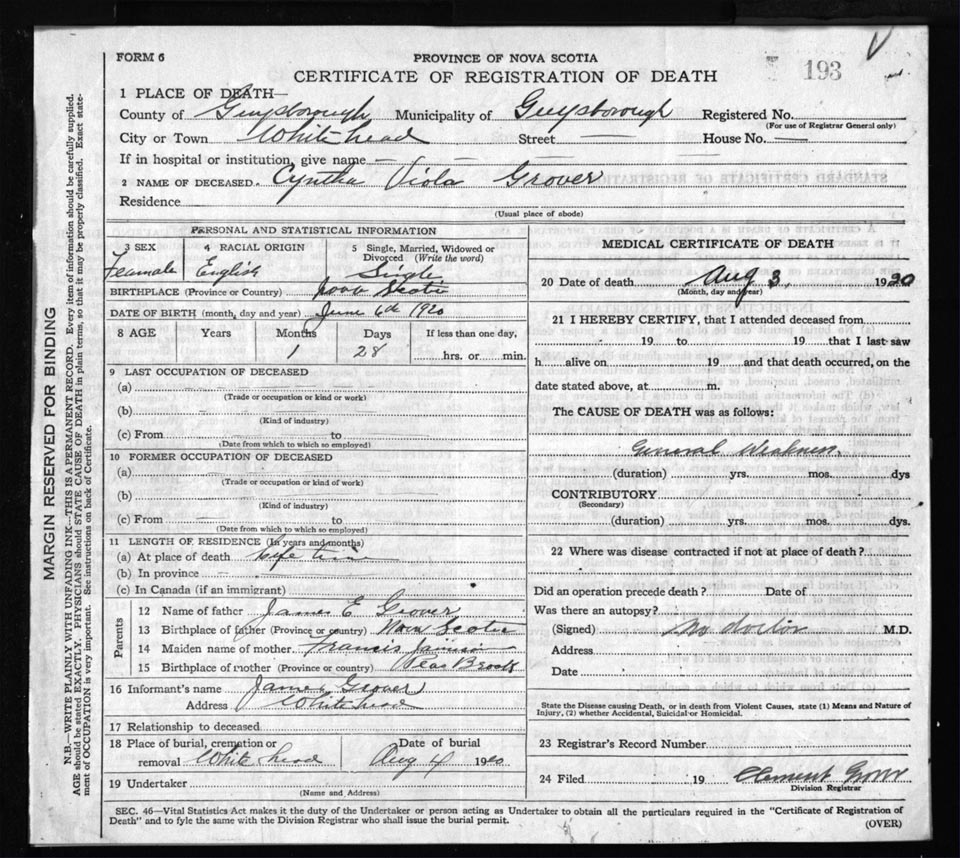 193
FORM 6
PROVINCE OF NOVA SCOTIA
CERTIFICATE OF REGISTRATION OF DEATH
1 PLACE OF DEATH—
County of Guysborough Municipality of Guysborough Registered No.
(For use of Registrar General only)
City or Town White head Street — House No. —
If in hospital or institution, give name — — —
2 NAME OF DECEASED. Cyntha Viola Grover
Residence
(Usual place of abode)
PERSONAL AND STATISTICAL INFORMATION
3 SEX 4 RACIAL ORIGIN 5 Single, Married, Widowed or Divorced (Write the word)
Feamale English Single
BIRTHPLACE (Province or Country) Nova Scotia
DATE OF BIRTH (month, day and year) June 6th 1920
8 AGE Years Months Days If less than one day,
1 28 hrs. or min.
9 LAST OCCUPATION OF DECEASED
(a)
(Trade or occupation or kind or work)
(b)
(Kind of industry)
(c) From to
(Date from which to which so employed)
10 FORMER OCCUPATION OF DECEASED
(a)
(Trade or occupation or kind of work)
(b)
(Kind of industry)
(c) From to
(Date from which to which so employed)
11 LENGTH OF RESIDENCE (In years and months)
(a) At place of death life time
(b) In province
(c) In Canada (if an immigrant)
Parents
12 Name of father James E Grover
13 Birthplace of father (Province or country) Nova Scotia
14 Maiden name of mother Francis
15 Birthplace of mother (Province or country) Pear Brook
16 Informant's name James Grover
Address White head
17 Relationship to deceased
18 Place of burial, cremation or removal White head Date of burial Aug 4 1920
19 Undertaker
(Name and Address)
MEDICAL CERTIFICATE OF DEATH
20 Date of death Aug 3 1920
(Month, day and year)
21 I HEREBY CERTIFY, that I attended deceased from
19 to 19 that I last saw
h alive on 19 and that death occurred, on the
date stated above, at m.
The CAUSE OF DEATH was as follows:
General Weakness
(duration) yrs. mos. dys
CONTRIBUTORY
(Secondary)
(duration) yrs. mos. dys.
22 Where was disease contracted if not at place of death?
Did an operation precede death? Date of
Was there an autopsy?
(Signed) No doctor M.D.
Address
Date
State the Disease causing Death, or in death from Violent Causes, state (1) Means and Nature of
Injury, (2) whether Accidental, Suicidal or Homicidal.
23 Registrar's Record Number
24 Filed 19 Clement Grover
Division Registrar
SEC. 46—Vital Statistics Act makes it the duty of the Undertaker or person acting as Undertaker to obtain all the particulars required in the "Certificate of Registration of
Death" and to fyle the same with the Division Registrar who shall issue the burial permit.
(OVER)
MARGIN RESERVED FOR BINDING
N.B.—WRITE PLAINLY WITH UNFADING INK—THIS IS A PERMANENT RECORD. Every item of information should be carefully supplied.
AGE should be stated EXACTLY. PHYSICIANS should STATE CAUSE OF DEATH in plain terms, so that it may be properly classified. Exact state-
ment of OCCUPATION is very important. See instructions on back of Certificate.